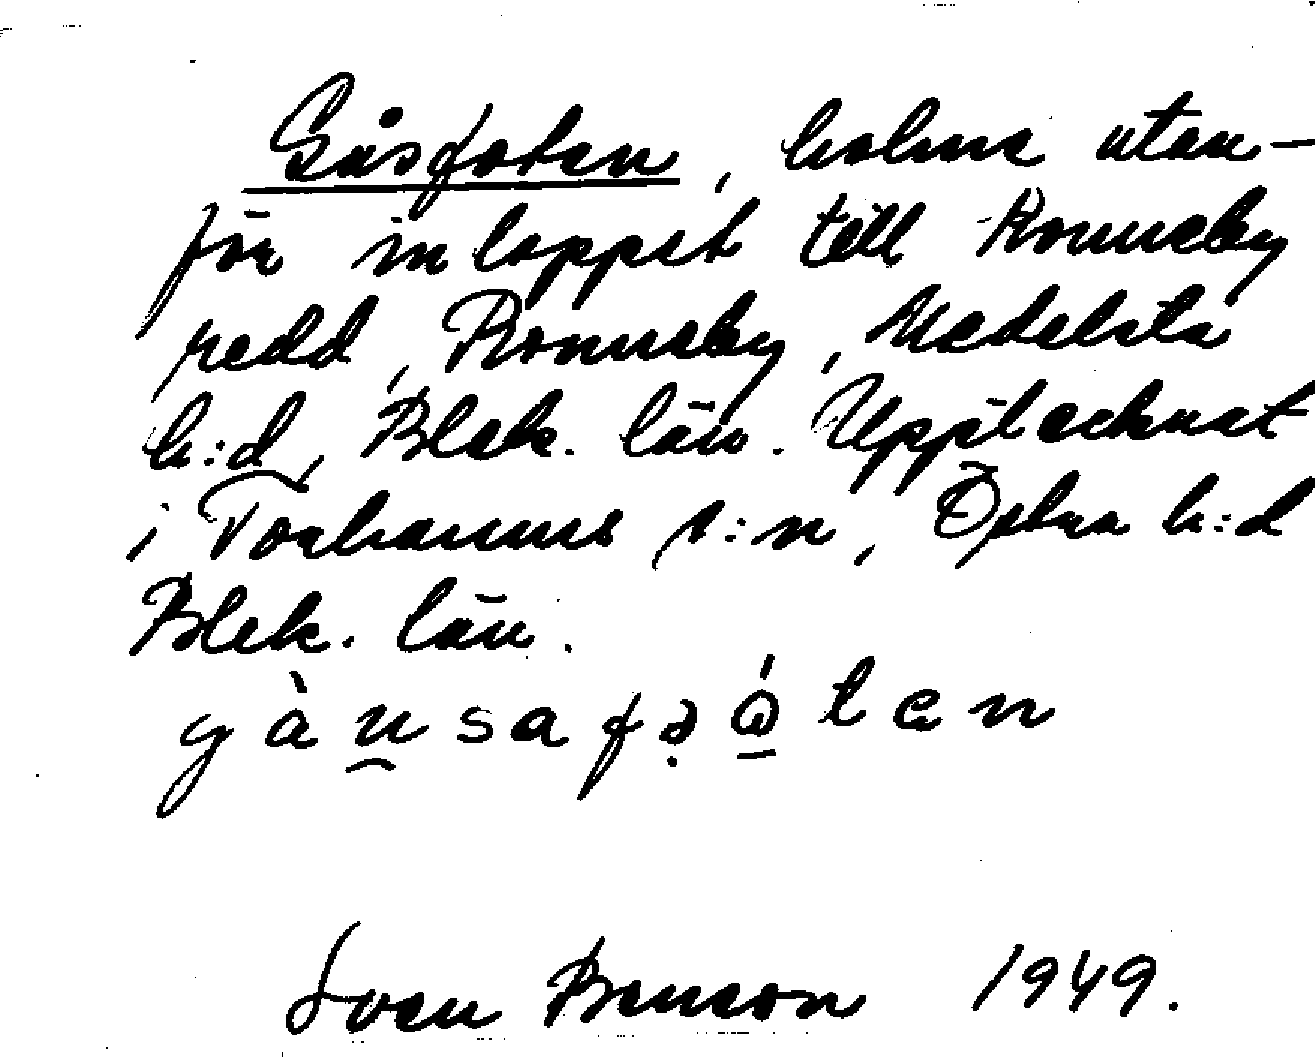 Gåsfoten, holme utan-
för inloppet till Ronneby
redd, Ronneby, Medelsta
h:d, Blek. län. Upptecknat
i Torhamns s:n, Östra h:d
Blek. län.
gàu̯safə̣ó̠ten
Sven Benson 1949.